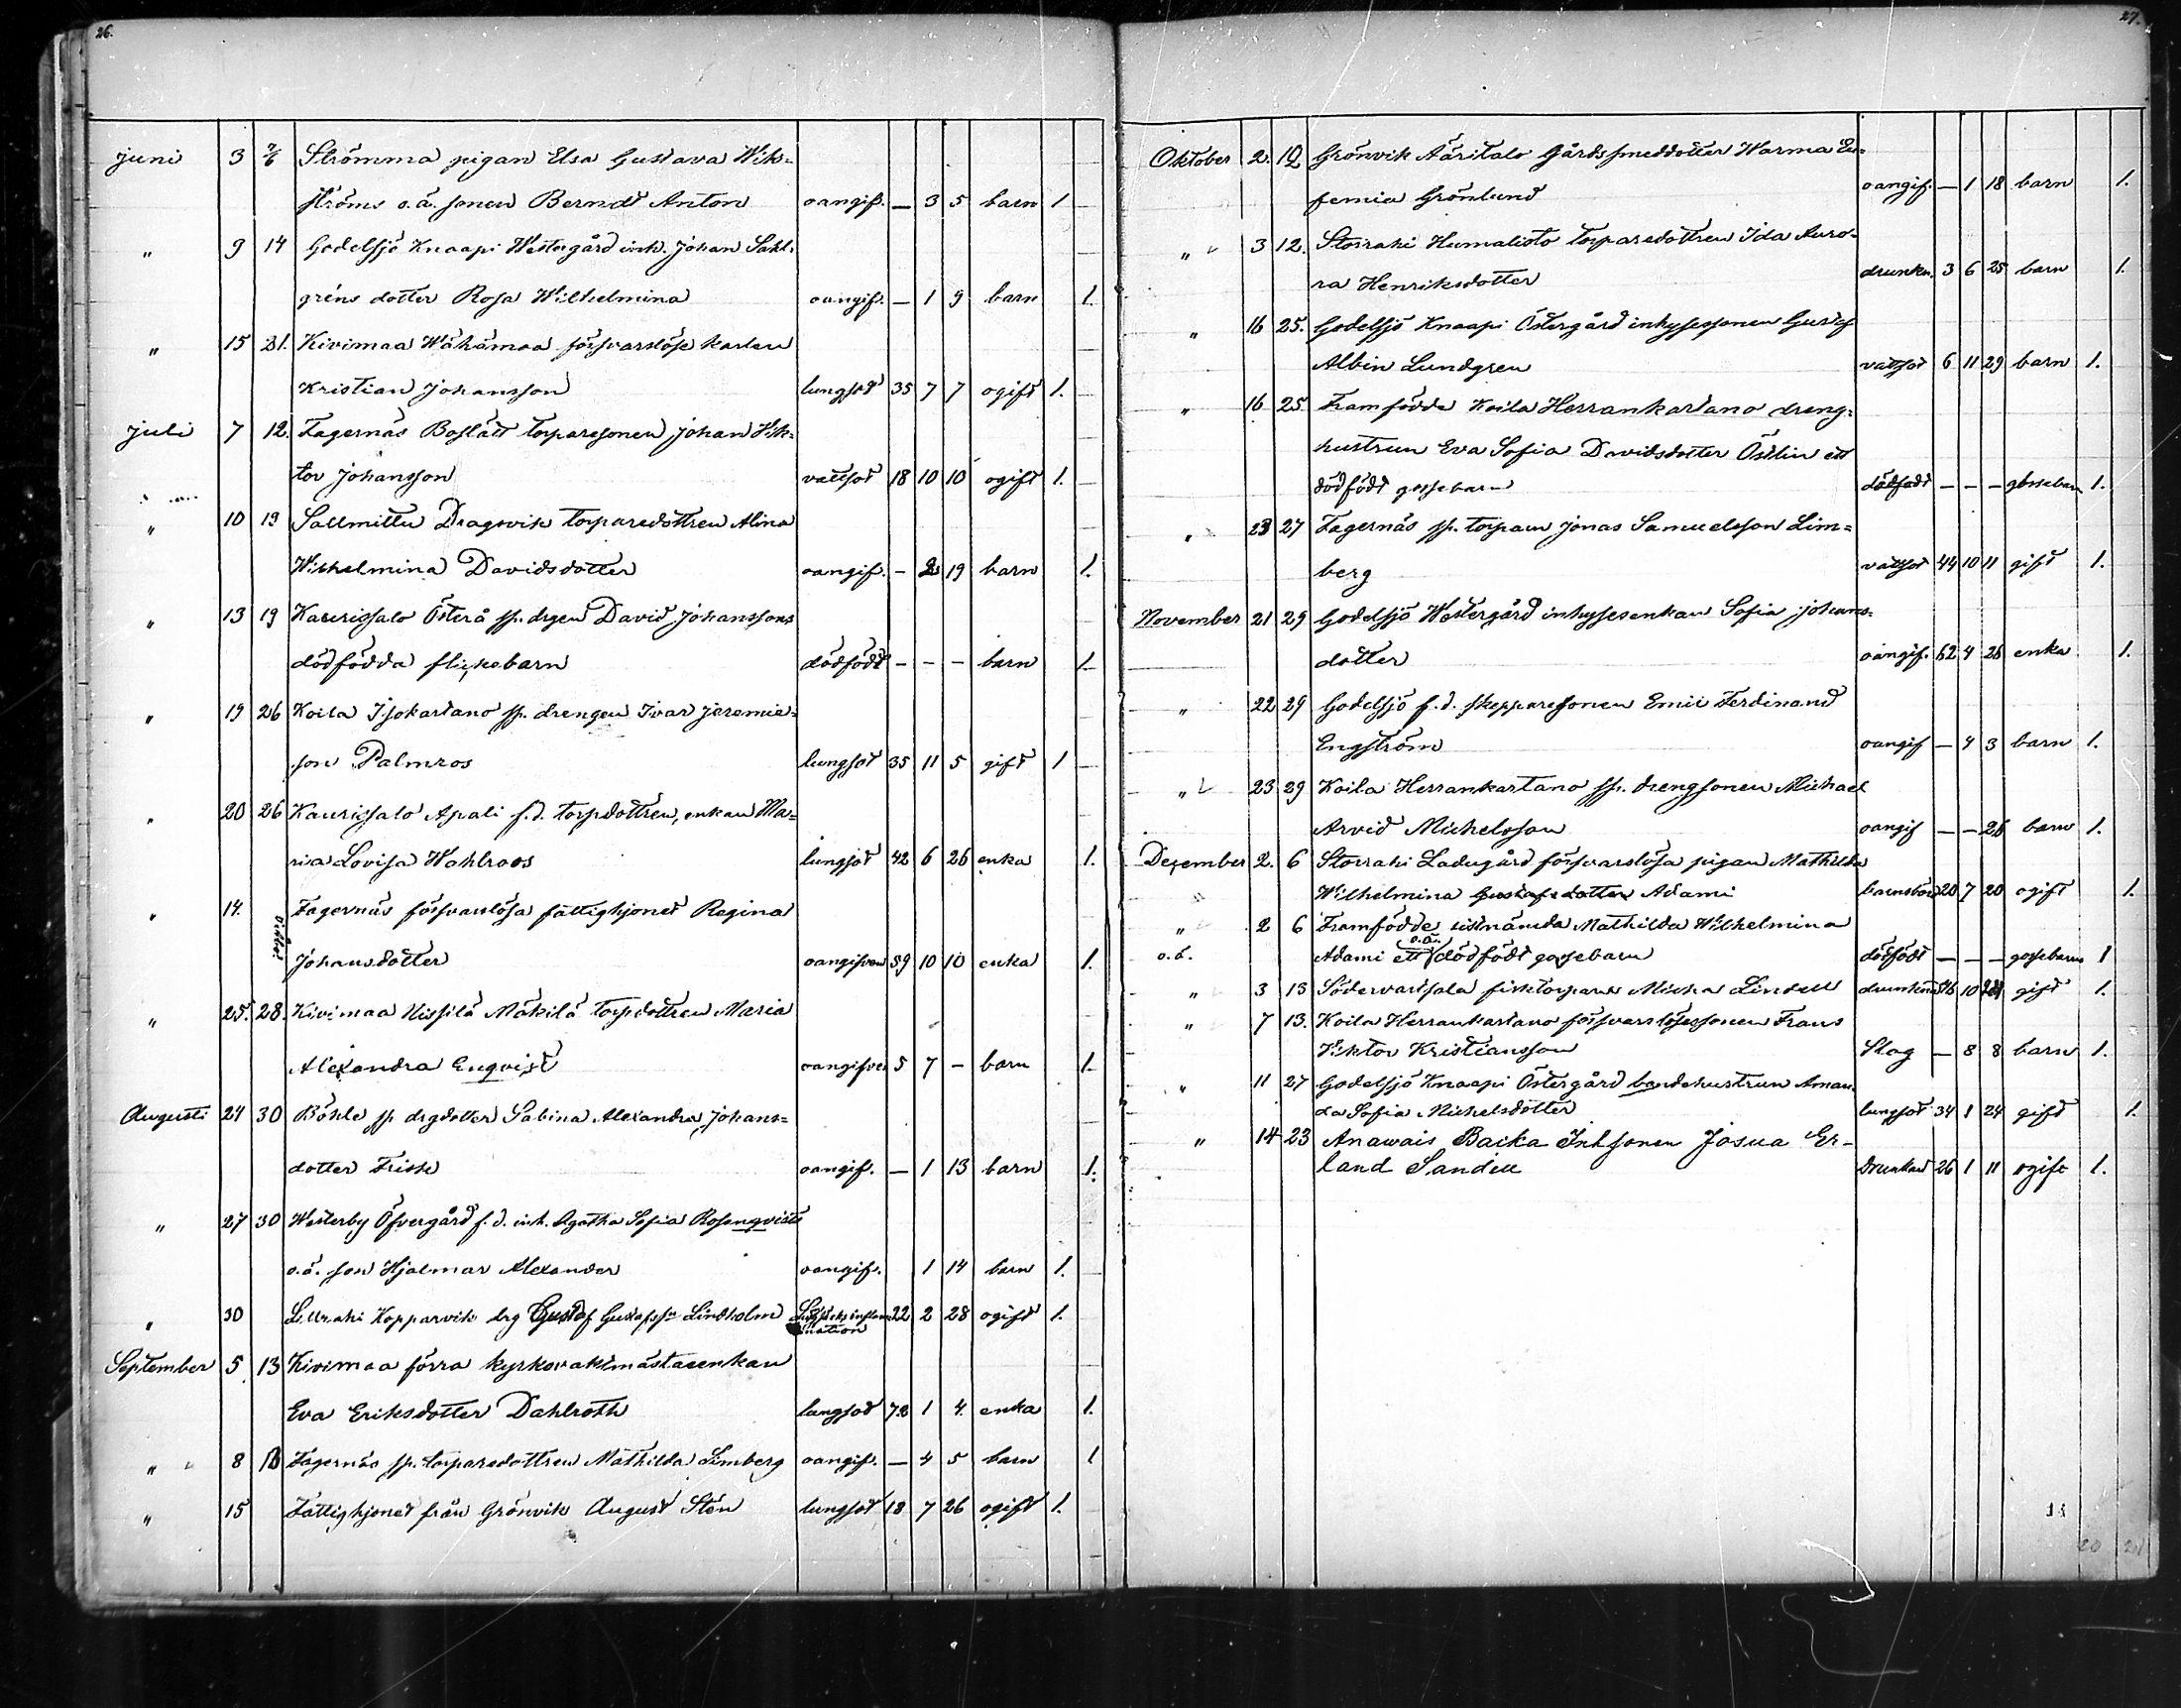 26.
juni 3 7/6 Strömma pigan Elsa Gustava Wik-
ströms o.ä. sonen Berndt Anton oangif. — 3 5 barn 1
" 9 14 Godelsjö Knaapi Westergård inh. Johan Sahl-
gréns dotter Rosa Wilhelmina oangif. — 1 9 barn 1.
" 15 21. Kivimaa Wähämaa försvarslöse karlen
Kristian Johansson lungsot 35 7 7 ogift 1.
Juli 7 12. Fagernäs Boslätt torparesonen Johan Vik-
tor Johansson vattsot 18 10 10 ogift 1.
" 10 19 Sallmittu Dragsvik torparedottren Alina
Wilhelmina Davidsdotter oangif. — 2 19 barn 1.
" 13 19 Kaurissalo Österå sp. drgen David Johanssons
dödfödda flickebarn dödfödt — — — barn 1
" 19 26 Koila Isokartano sp. drengen Ivar Jeremie-
son Palmros lungsot 35 11 5 gift 1
" 20 26 Kaurissalo Apali f.d. torpdottren, enkan Ma-
ria Lovisa Wahlroos lungsot 42 6 26 enka 1.
" 14. Fagernäs försvarslösa fattighjonet Regina
Johansdotter oangifven 59 10 10 enka 1.
" 25. 28. Kivimaa Nissilä Mäkilä torpdottren Maria
Alexandra Enqvist oangifven 5 7 — barn 1
Augusti 24 30 Böhle sp drgdotter Sabina Alexandra Johans-
dotter Frisk oangif. — 1 13 barn 1.
" 27 30 Westerby Öfvergård f.d. inh. Agatha Sofia Rosenqvists
o.ä. son Hjalmar Alexander oangif. 1 14 barn 1.
" 30 Lillrahi Kopparvik drg Gustaf Gustafss:n Lindholm 22 2 28 ogift 1.
mation
September 5 13 Kivimaa förra kyrkovaktmästareenkan
Eva Eriksdotter Dahlroth lungsot 72 1 4. enka 1.
" 8 13 Fagernäs sp. torparedottren Mathilda Limberg oangif. — 4 5 barn 1
" 15 Fattighjonet från Grönvik August Stén lungsot 18 7 26 ogift 1.
27.
Oktober 2. 12 Grönvik Ääritalo Gårdssmeddotter Warma Eu-
femia Grönlund oangif. — 1 18 barn 1.
" 3 12. Storrahi Humalisto torparedottren Ida Auro-
ra Henriksdotter drunkn. 3 6 25 barn 1.
" 16 25. Godelsjö Knaapi Östergård inhysessonen Gustaf
Albin Lundgren vattsot 6 11 29 barn 1.
" 16 25. Framfödde Koila Herrankartano dreng-
hustrun Eva Sofia Davidsdotter Östlin ett
dödfödt gossebarn dödfödt — — — gossebarn 1.
" 23 27 Fagernäs sp. torparn Jonas Samuelsson Lim-
berg vattsot 44 10 11 gift 1.
November 21 29 Godelsjö Westergård inhysesenkan Sofia Johans-
dotter oangif. 62 4 26 enka 1.
" 22 29 Godelsjö f.d. skepparesonen Emil Ferdinand
Engström oangif — 4 3 barn 1.
" 23 29 Koila Herrankartano sp. drengsonen Michael
Arvid Michelsson oangif — — 26 barn 1.
December 2. 6 Storrahi Ladugård försvarslösa pigan Mathilda
Wilhelmina Gustafsdotter Adami barnsbörd 20 7 20 ogift 1.
" 2 6 Framfödde sistnämda Mathilda Wilhelmina
o.ä. Adami ett o.ä. dödfödt gossebarn dödfödt — — — gossebarn 1
" 3 13 Södervartsala fisktorparn Micha Lindell drunknad 56 10 gift 1.
" 7 13. Koila Herrankartano försvarslösessonen Frans
Viktor Kristiansson Slag — 8 8 barn 1.
" 11 27 Godelsjö Knaapi Östergård bondehustrun Aman-
da Sofia Michelsdotter lungsot 34 1 24 gift 1.
" 14 23 Anawais Backa Inhsonen Josua Er-
land Sandell Drunknad 26 1 11 ogift 1.
11
20 21